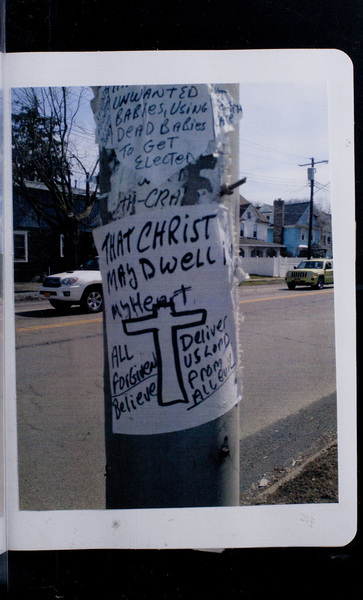 UNWANTED
BABIES, USING
DEAD BABIES
TO GET
ELECTED
THAT CHRIST
MAY DWELL
my Heart
ALL
Forgiven
Believe
Deliver
US Lord
From
ALL Evil